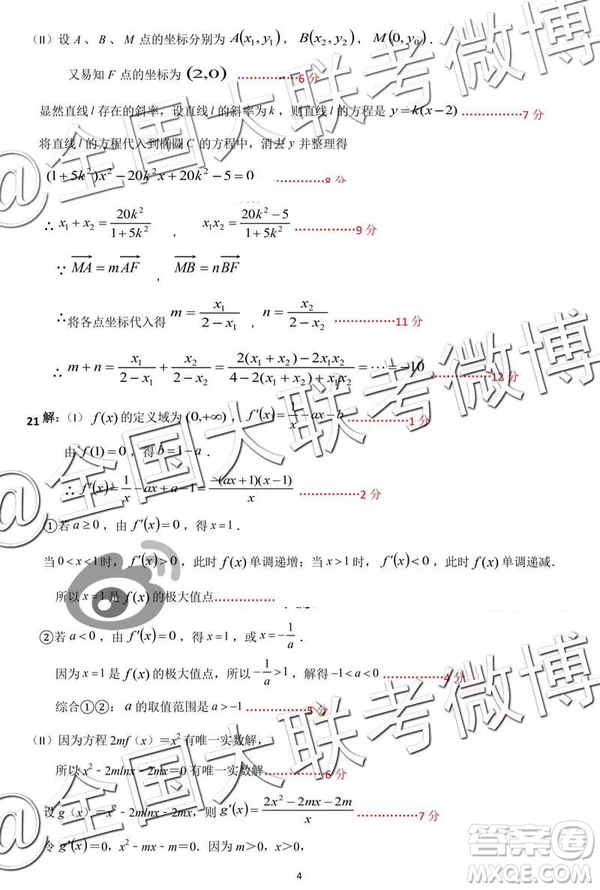 （II）设 A 、 B 、 M 点的坐标分别为 A(x₁,y₁)， B(x₂,y₂)， M(0,y₀)．
又易知 F 点的坐标为 (2,0) ……………6 分
显然直线 l 存在的斜率，设直线 l 的斜率为 k ，则直线 l 的方程是 y=k(x−2)……………7 分
将直线 l 的方程代入到椭圆 C 的方程中，消去 y 并整理得
(1+5k²)x²−20k²x+20k²−5=0 ……………8 分
∴ x₁+x₂=20k²/(1+5k²) ， x₁x₂=(20k²−5)/(1+5k²) ……………9 分
∵ MA=mAF ， MB=nBF
∴将各点坐标代入得 m=x₁/(2−x₁) ， n=x₂/(2−x₂) ……………11 分
∴ m+n=x₁/(2−x₁)+x₂/(2−x₂)=(2(x₁+x₂)−2x₁x₂)/(4−2(x₁+x₂)+x₁x₂)=⋯⋯=−10 ……………12 分
21 解:（I） f(x)的定义域为(0,+∞)， f′(x)=1/x−ax−b ……………1 分
由 f(1)=0 ，得 b=1−a ．
∴ f′(x)=1/x−ax+a−1=−(ax+1)(x−1)/x ……………2 分
①若 a≥0 ，由 f′(x)=0 ，得 x=1 ．
当 0<x<1 时， f′(x)>0 ，此时 f(x) 单调递增；当 x>1 时， f′(x)<0 ，此时 f(x) 单调递减．
所以 x=1 是 f(x) 的极大值点……………
②若 a<0 ，由 f′(x)=0 ，得 x=1 ，或 x=−1/a ．
因为 x=1 是 f(x) 的极大值点，所以 −1/a>1 ，解得 −1<a<0 ……………4 分
综合①②： a 的取值范围是 a>−1 ……………5 分
（II）因为方程 2mf（x）=x² 有唯一实数解，
所以 x²−2mlnx−2mx=0 有唯一实数解……………6 分
设 g（x）=x²−2mlnx−2mx，则 g′(x)=(2x²−2mx−2m)/x ……………7 分
令 g′(x)=0，x²−mx−m=0．因为 m＞0，x＞0，
4
@全国大联考微博
@全国大联考微博
@全国大联考微博
答案圈
MXQE.COM